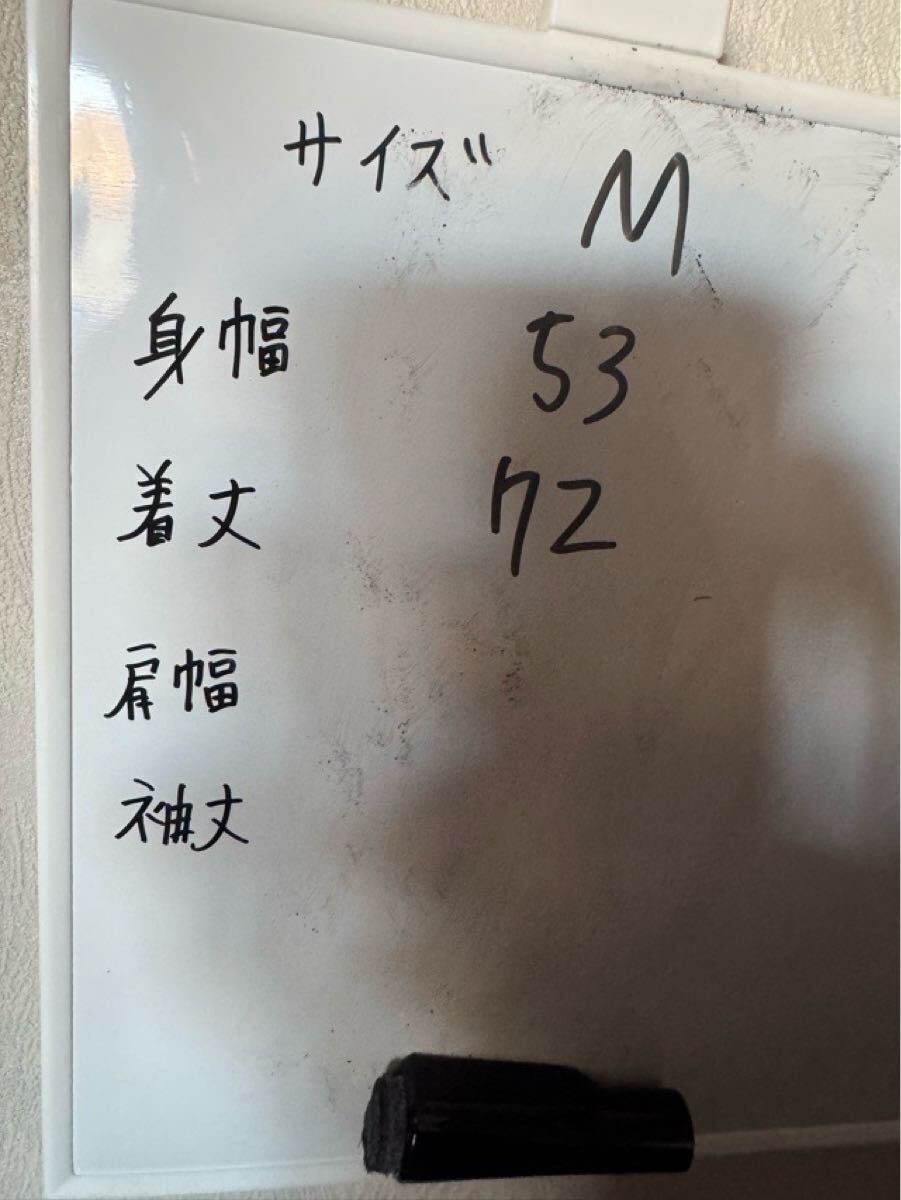 サイズ M
身幅 53
着丈 72
肩幅
袖丈